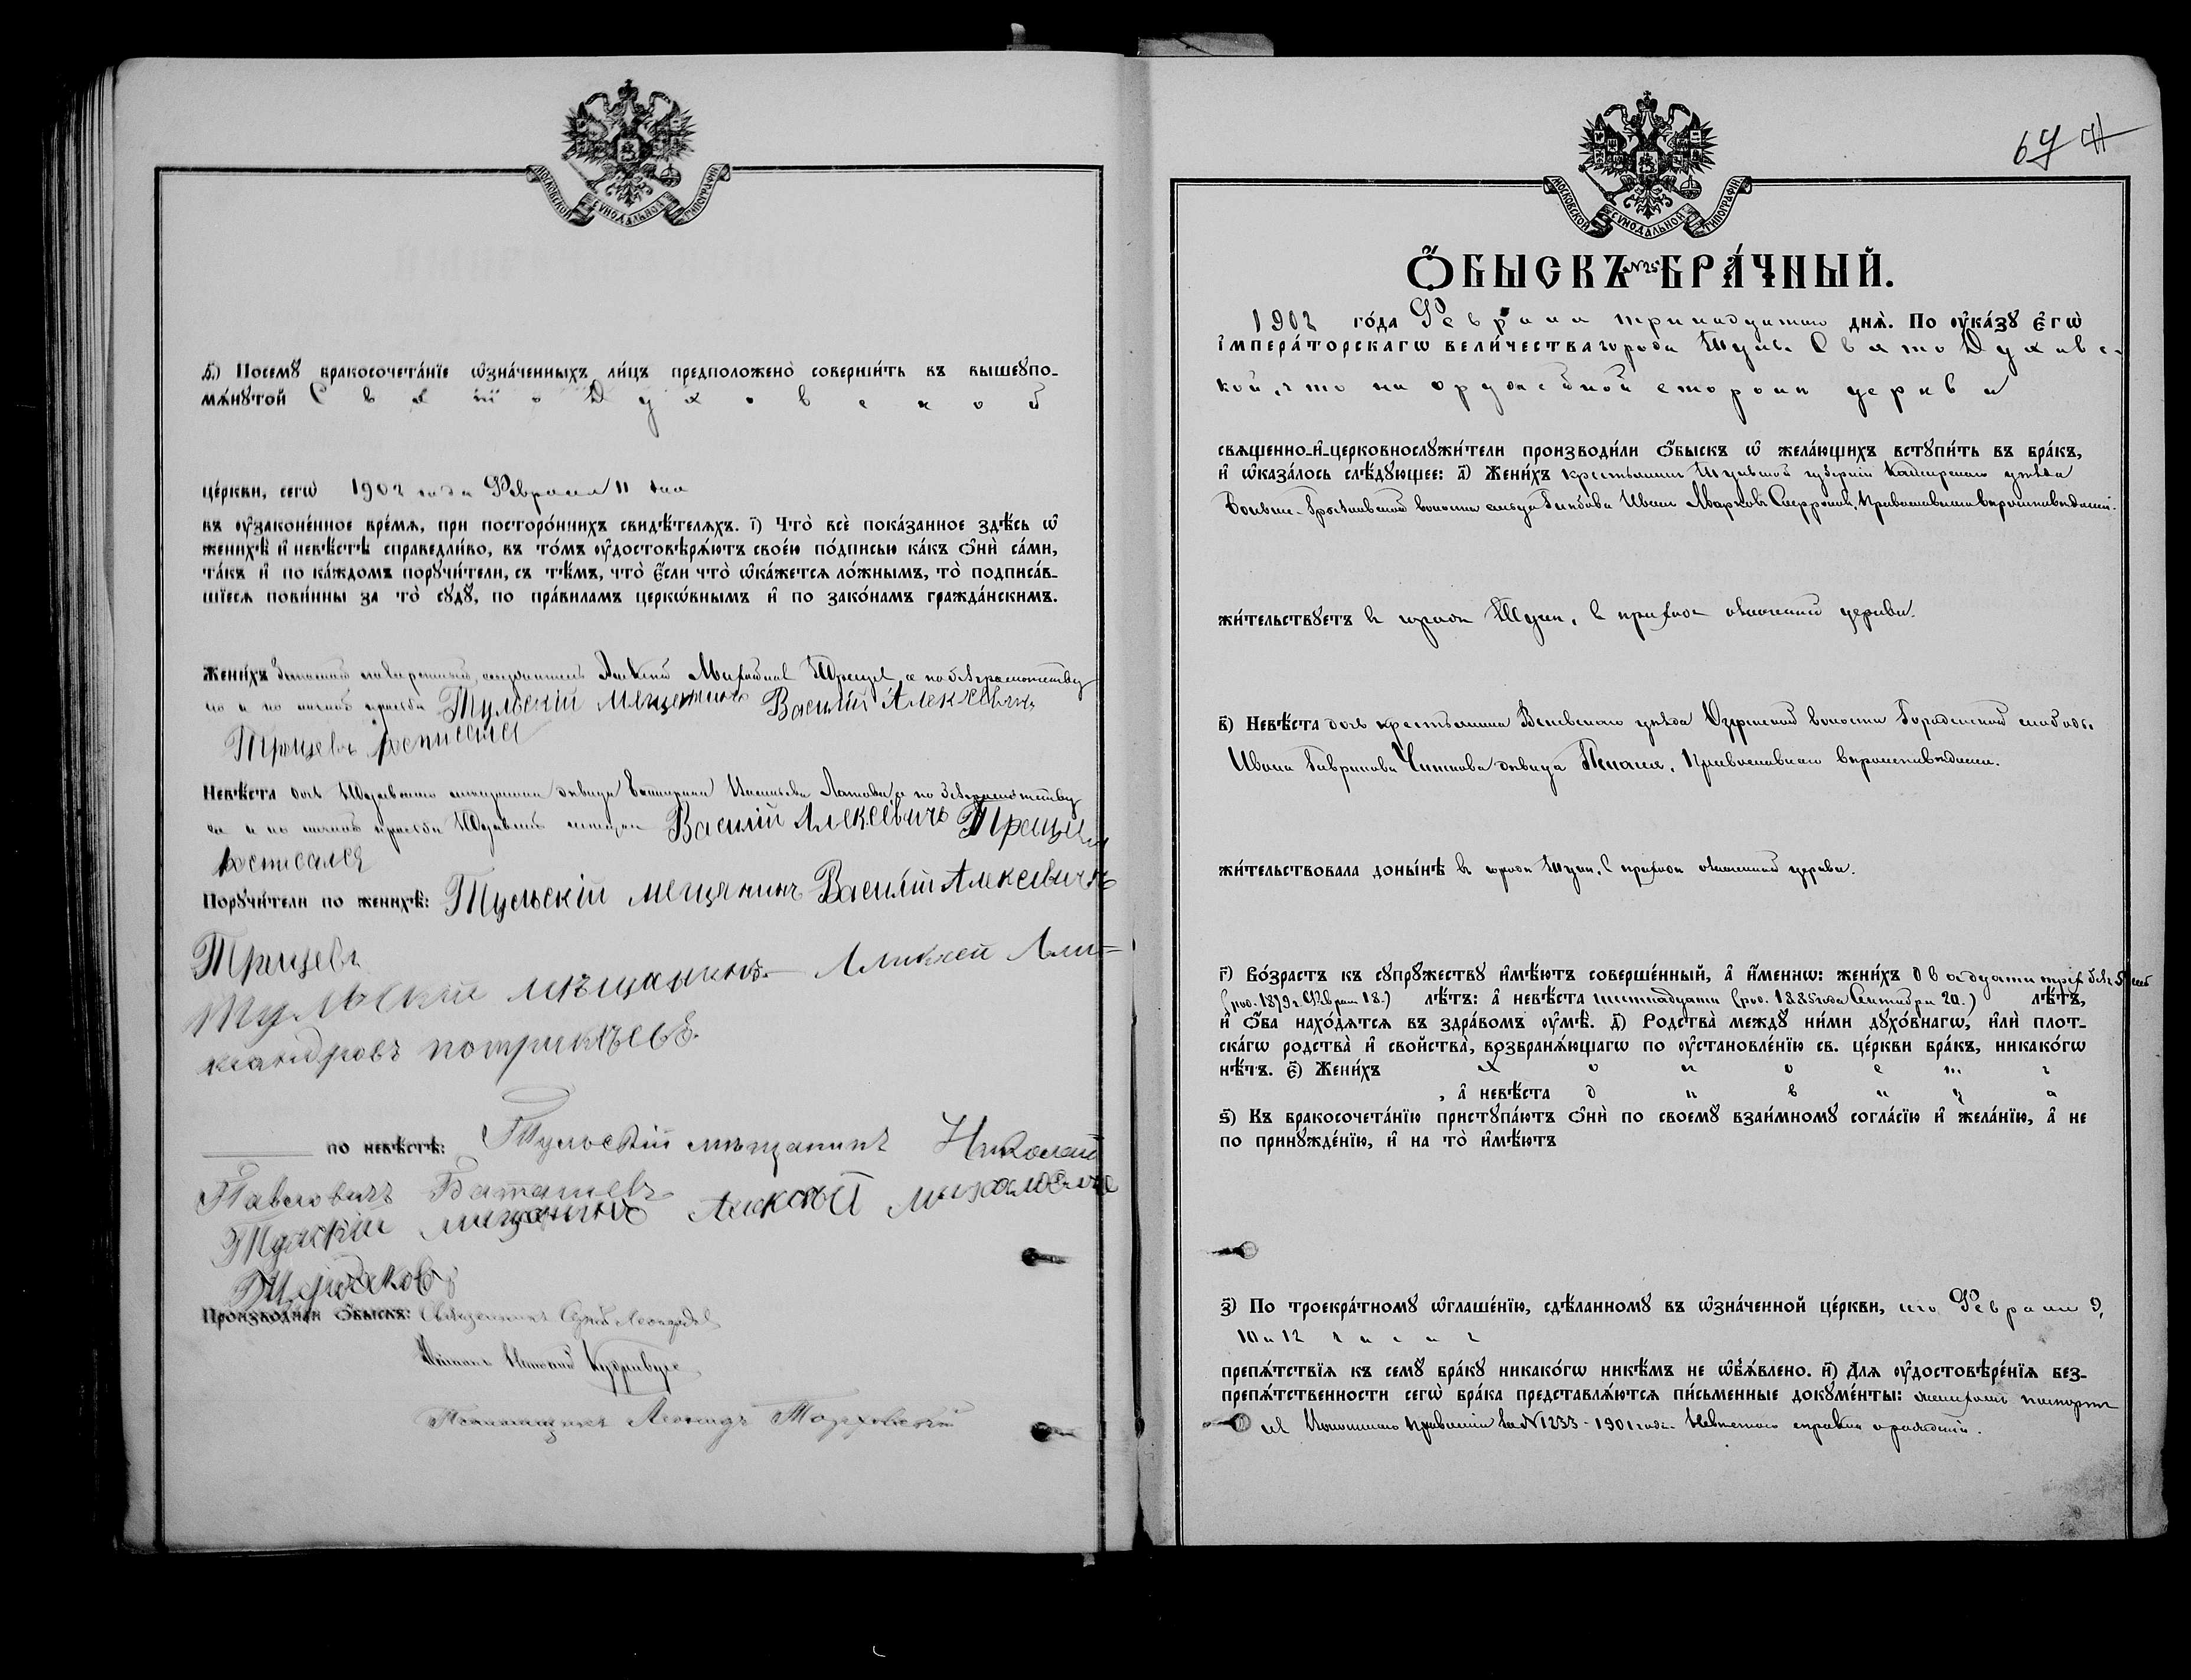 МОСКОВСКОЙ СѴНОДАЛЬНОЙ ТИПОГРАФІИ
д҃і) Посемꙋ бракосочета́нїе ѡ҆зна́ченныхъ ли́цъ предположено̀ соверши́ть въ вышеꙋпо-
мѧ́нꙋтой Свято Духовской
це́ркви, сегѡ̀ 1902 года Февраля 11 дня
въ ᲂу҆зако́ненное вре́мѧ, при посторо́ннихъ свидѣ́телѧхъ. і҃) Что̀ всѐ пока́занное здѣ́сь ѡ҆
женихѣ̀ и҆ невѣ́стѣ справедли́во, въ то́мъ ᲂу҆достовѣрѧ́ютъ свое́ю по́дписью ка́къ ѻ҆нѝ са́ми,
та́къ и҆ по ка́ждомъ порꙋчи́тели, съ тѣ́мъ, что̀ є҆́сли что̀ ѡ҆ка́жетсѧ ло́жнымъ, то̀ подписа́в-
шїесѧ пови́нны за то̀ сꙋдꙋ̀, по пра́виламъ церко́внымъ и҆ по зако́намъ гражда́нскимъ.
Жени́хъ Алексей Михайлов а по безграмотству
его и по личной просьбе Тульскій мещенинъ Василій Алексѣвичъ
Трещевъ росписался
Невѣ́ста дочь мещанина девица Екатерина а по безграмотству
ея и по личной просьбе Василій Алексеівичъ Трещевъ
росписался
Порꙋчи́тели по женихѣ̀: Тульскій мещянинъ Василій Алексевичъ
Трещевъ
Тульскій мещанинъ Алексей Алек=
сандровъ потрикѣевъ.
по невѣ́стѣ: Тульскій мѣщанинъ Николай
Павловичъ Баташевъ
Тулскій мещанинъ Алексѣй Михаловичъ
Производи́ли ѻ҆́быскъ: Священникъ
Діаконъ
Псаломщикъ Леонидъ Торховскій
67
МОСКОВСКОЙ СѴНОДАЛЬНОЙ ТИПОГРАФІИ
Ѻ҆́БЫСКЪ №25 БРА́ЧНЫЙ.
1902 го́да Февраля тринадцатаго днѧ̀. По ᲂу҆ка́зꙋ є҆гѡ̀
і҆мпера́торскагѡ вели́чества города Тулы Свято Духовс-
кой, что на оружейной стороне церкви
свѧще́нно-и҆-церковнослꙋжи́тели производи́ли ѻ҆́быскъ ѡ҆ жела́ющихъ встꙋпи́ть въ бра́къ,
и҆ ѡ҆каза́лось слѣ́дꙋющее: а҃) Жени́хъ крестьянин Тульской губернии Каширского уезда
волости сельца Глебова Иван Марков Православнаго вероисповедания.
жи́тельствꙋетъ в городе Туле, в приходе означенной церкви.
в҃) Невѣ́ста дочь крестьянина Веневского уезда волости Городенской слободы
Ивана Гаврилова девица Пелагея, Православнаго вероисповедания.
жи́тельствовала доны́нѣ в городе Туле, в приходе означенной церкви.
г҃) Во́зрастъ къ сꙋпрꙋ́жествꙋ и҆мѣ́ютъ соверше́нный, а҆ и҆́меннѡ: жени́хъ двадцати трех без 5 дней
(род. 1879 г. Февраля 18.) лѣ́тъ: а҆ невѣ́ста шестнадцати (род. 1885 года Сентября 20.) лѣ́тъ,
и҆ ѻ҆́ба нахо́дѧтсѧ въ здра́вомъ ᲂу҆мѣ̀. д҃) Родства̀ междꙋ̀ ни́ми дꙋхо́внагѡ, и҆лѝ плот-
ска́гѡ родства̀ и҆ свойства̀, возбранѧ́ющагѡ по ᲂу҆становле́нїю св. це́ркви бра́къ, никако́гѡ
нѣ́тъ. є҃) Жени́хъ холост
, а҆ невѣ́ста девица
ѕ҃) Къ бракосочета́нїю пристꙋпа́ютъ ѻ҆нѝ по своемꙋ̀ взаи́мномꙋ согла́сїю и҆ жела́нїю, а҆ не
по принꙋжде́нїю, и҆ на то̀ и҆мѣ́ютъ
з҃) По троекра́тномꙋ ѡ҆глаше́нїю, сдѣ́ланномꙋ въ ѡ҆зна́ченной це́ркви, Февраля 9,
10 и 12 чисел
препѧ́тствїѧ къ семꙋ̀ бра́кꙋ никако́гѡ никѣ́мъ не ѡ҆б̾ѧ́влено. и҃) Длѧ ᲂу҆достовѣре́нїѧ без-
препѧ́тственности сегѡ̀ бра́ка представлѧ́ютсѧ пи́сьменные докꙋме́нты: женихом паспорт
из Волостного Правления за №1233 - 1901 года. Невестою справка о рождении.